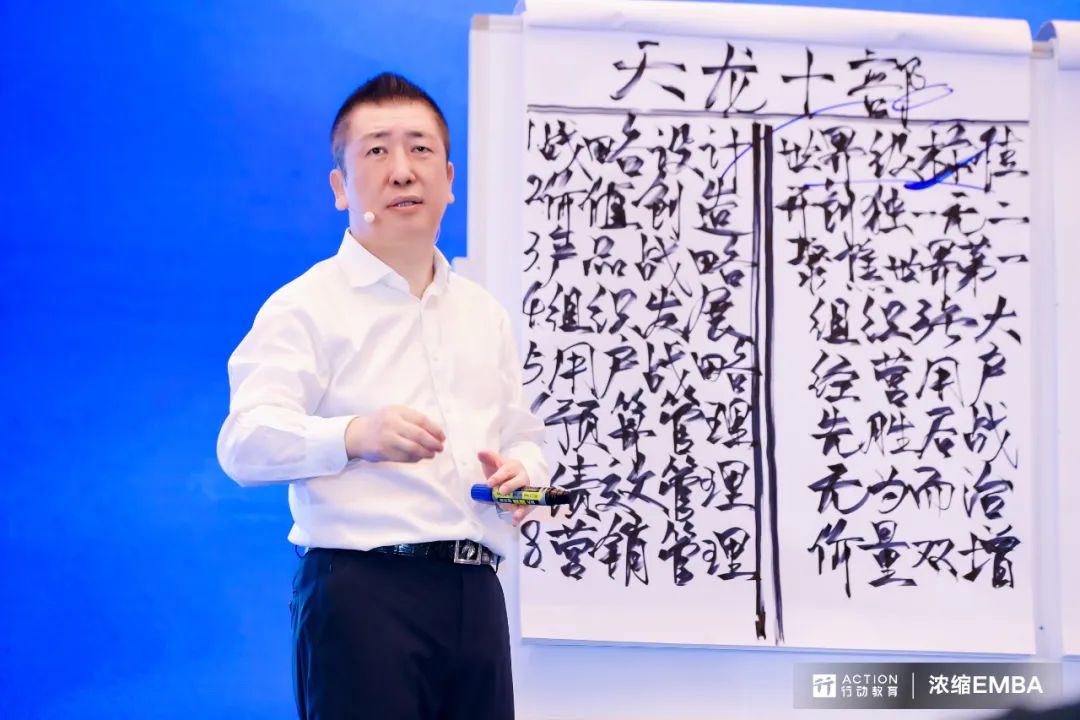 天龙十部
1.战略设计
2.价值创造
3.产品战略
4.组织发展
5.用户战略
预算管理
绩效管理
8.营销管理
世界级标
开创独一无二
聚焦世界第一
组织强大
经营用户
先胜后战
无为而治
价量双增
ACTION
行动教育
浓缩EMBA